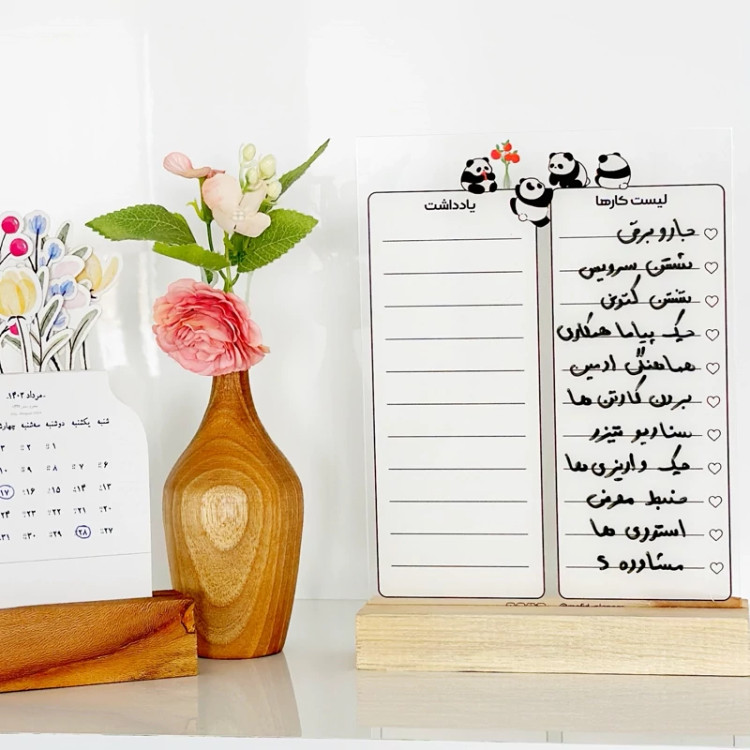 لیست کارها
جارو برقی
شستن سرویس
شستن کتونی
چک پیاما همکاری
هماهنگی ادمین
بردن کارتن ها
سناریو تیزر
چک واریزی ها
ضبط معرفی
استوری ها
مشاوره 5
یادداشت
مرداد ۱۴۰۲
شنبه یکشنبه دوشنبه سه‌شنبه
۱ ۲ ۳
۶ ۷ ۸ ۹ ۱۰
۱۳ ۱۴ ۱۵ ۱۶ ۱۷
۲۰ ۲۱ ۲۲ ۲۳ ۲۴
۲۷ ۲۸ ۲۹ ۳۰ ۳۱